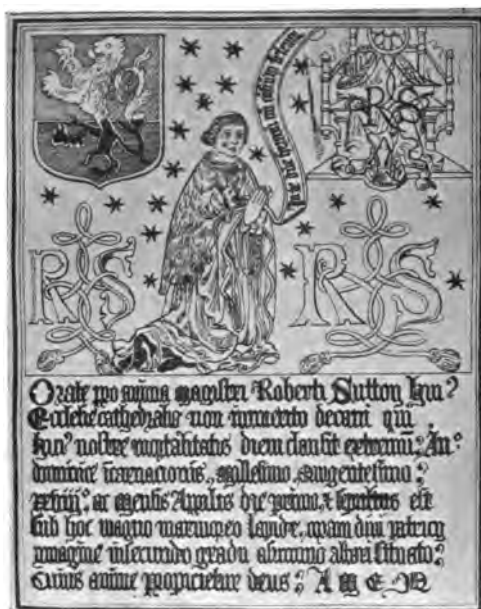 R S
R S
R S
Orate pro anima magistri Roberti Sutton hui?
Ecclesie cathedralis non immerito decani qui
hui? nostre mortalitatis diem clausit extremu: An:
dominice icarnacionis, millesimo, quingentesimo:
ac mensis Aprilis die primo, & sepultus est
sub hoc magno marmoreo lapide, quam diui patricij
imagine insecundo gradu abimmo altari situato:
Cuius anime propicietur deus: A M E N